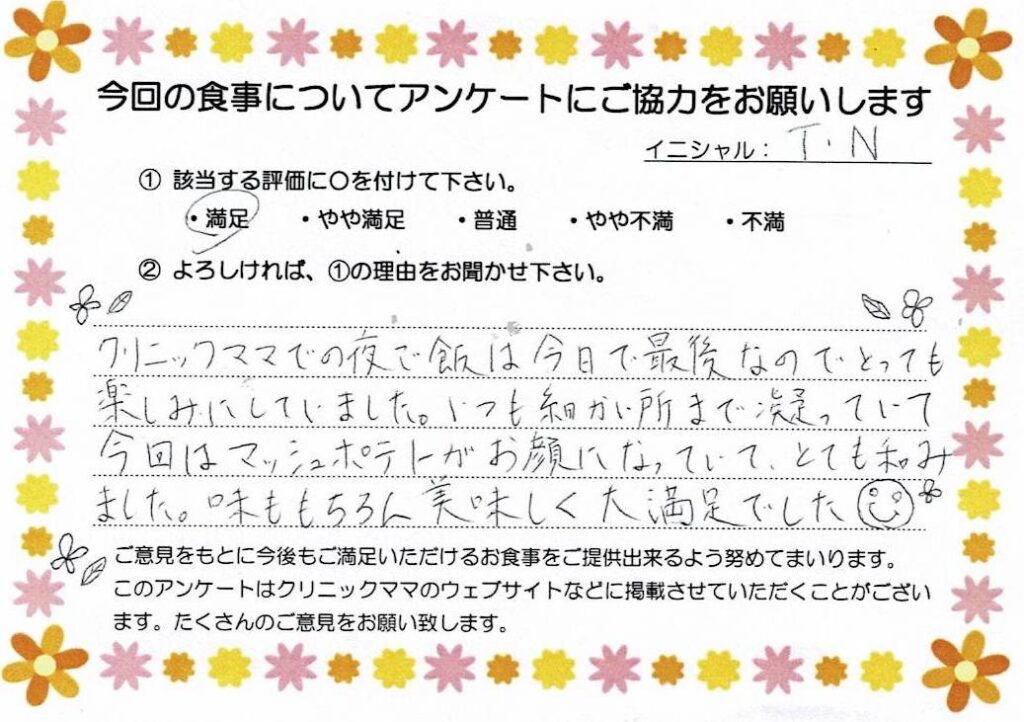 今回の食事についてアンケートにご協力をお願いします
イニシャル： T・N
① 該当する評価に〇を付けて下さい。
・満足 ・やや満足 ・普通 ・やや不満 ・不満
② よろしければ、①の理由をお聞かせ下さい。
クリニックママでの夜ご飯は今日で最後なのでとっても
楽しみにしていました。いつも細かい所まで凝っていて
今回はマッシュポテトがお顔になっていて、とても和み
ました。味ももちろん美味しく大満足でした
ご意見をもとに今後もご満足いただけるお食事をご提供出来るよう努めてまいります。
このアンケートはクリニックママのウェブサイトなどに掲載させていただくことがござい
ます。たくさんのご意見をお願い致します。